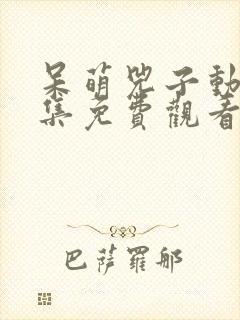 呆萌兇子動
集免費觀看
巴薩羅那